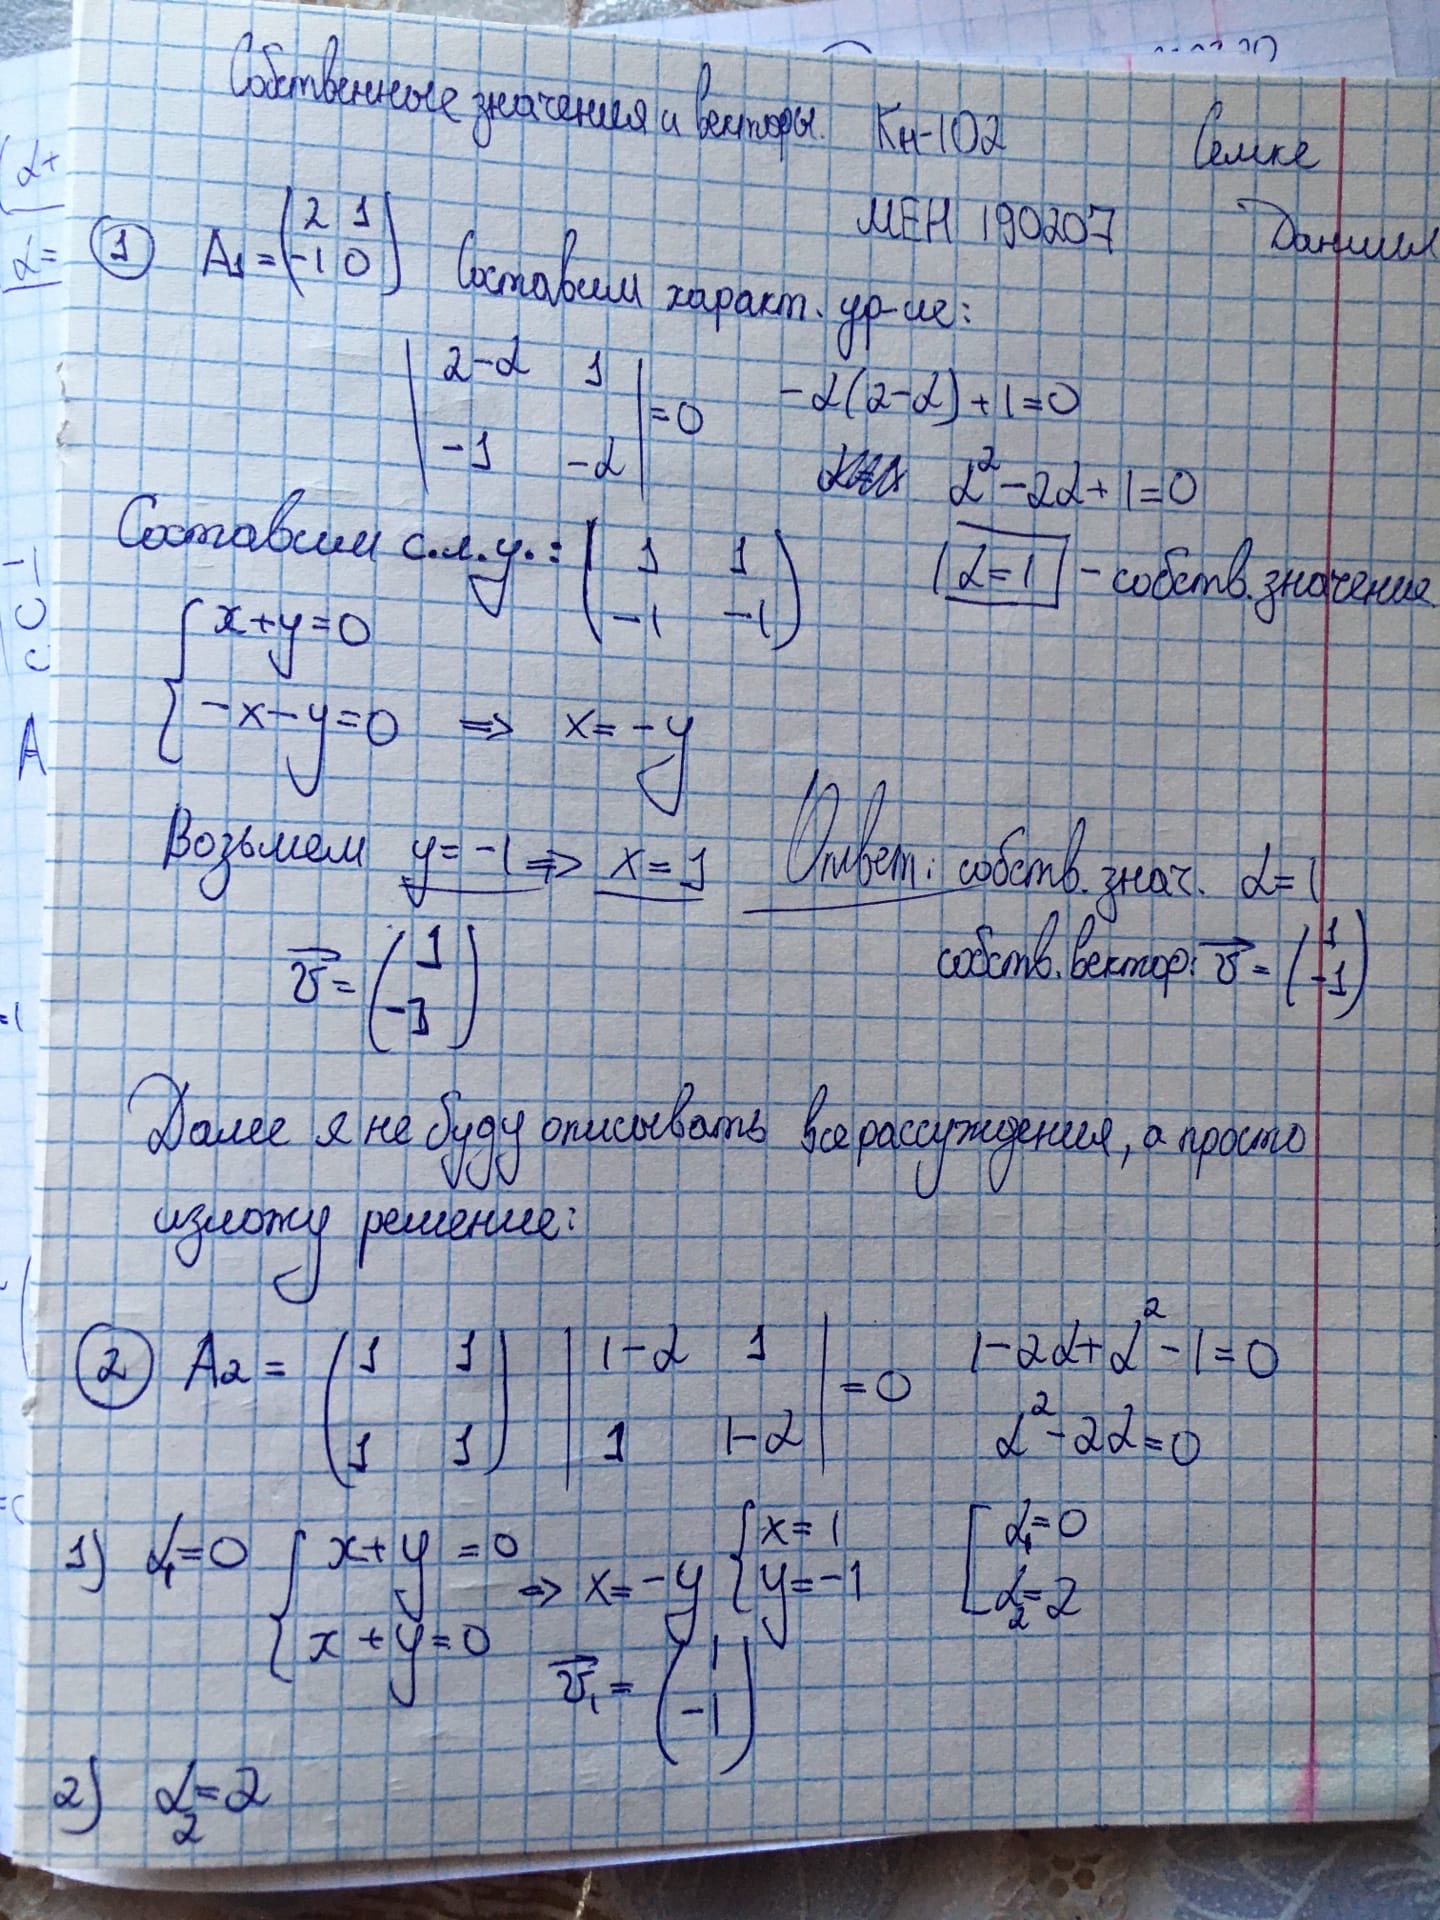 Собственные значения и векторы. Кн-102 Семке
МЕН 190207 Даниил
1 A1 = (2 1
-1 0) Составим характ. ур-ие:
|2-α 1
-1 -α| = 0
-α(2-α)+1=0
α²-2α+1=0
α=1 - собств. значение
Составим с.л.у.: (1 1
-1 -1)
{x+y=0
-x-y=0 => x=-y
Возьмем y=-1 => x=1
v = (1
-1)
Ответ: собств. знач. α=1
собств. вектор: v = (1
-1)
Далее я не буду описывать все рассуждения, а просто
изложу решение:
2 A2 = (1 1
1 1)
|1-α 1
1 1-α| = 0
1-2α+α²-1=0
α²-2α=0
[α1=0
α2=2
1) α1=0 {x+y=0
x+y=0 => x=-y {x=1
y=-1
v1 = (1
-1)
2) α2=2